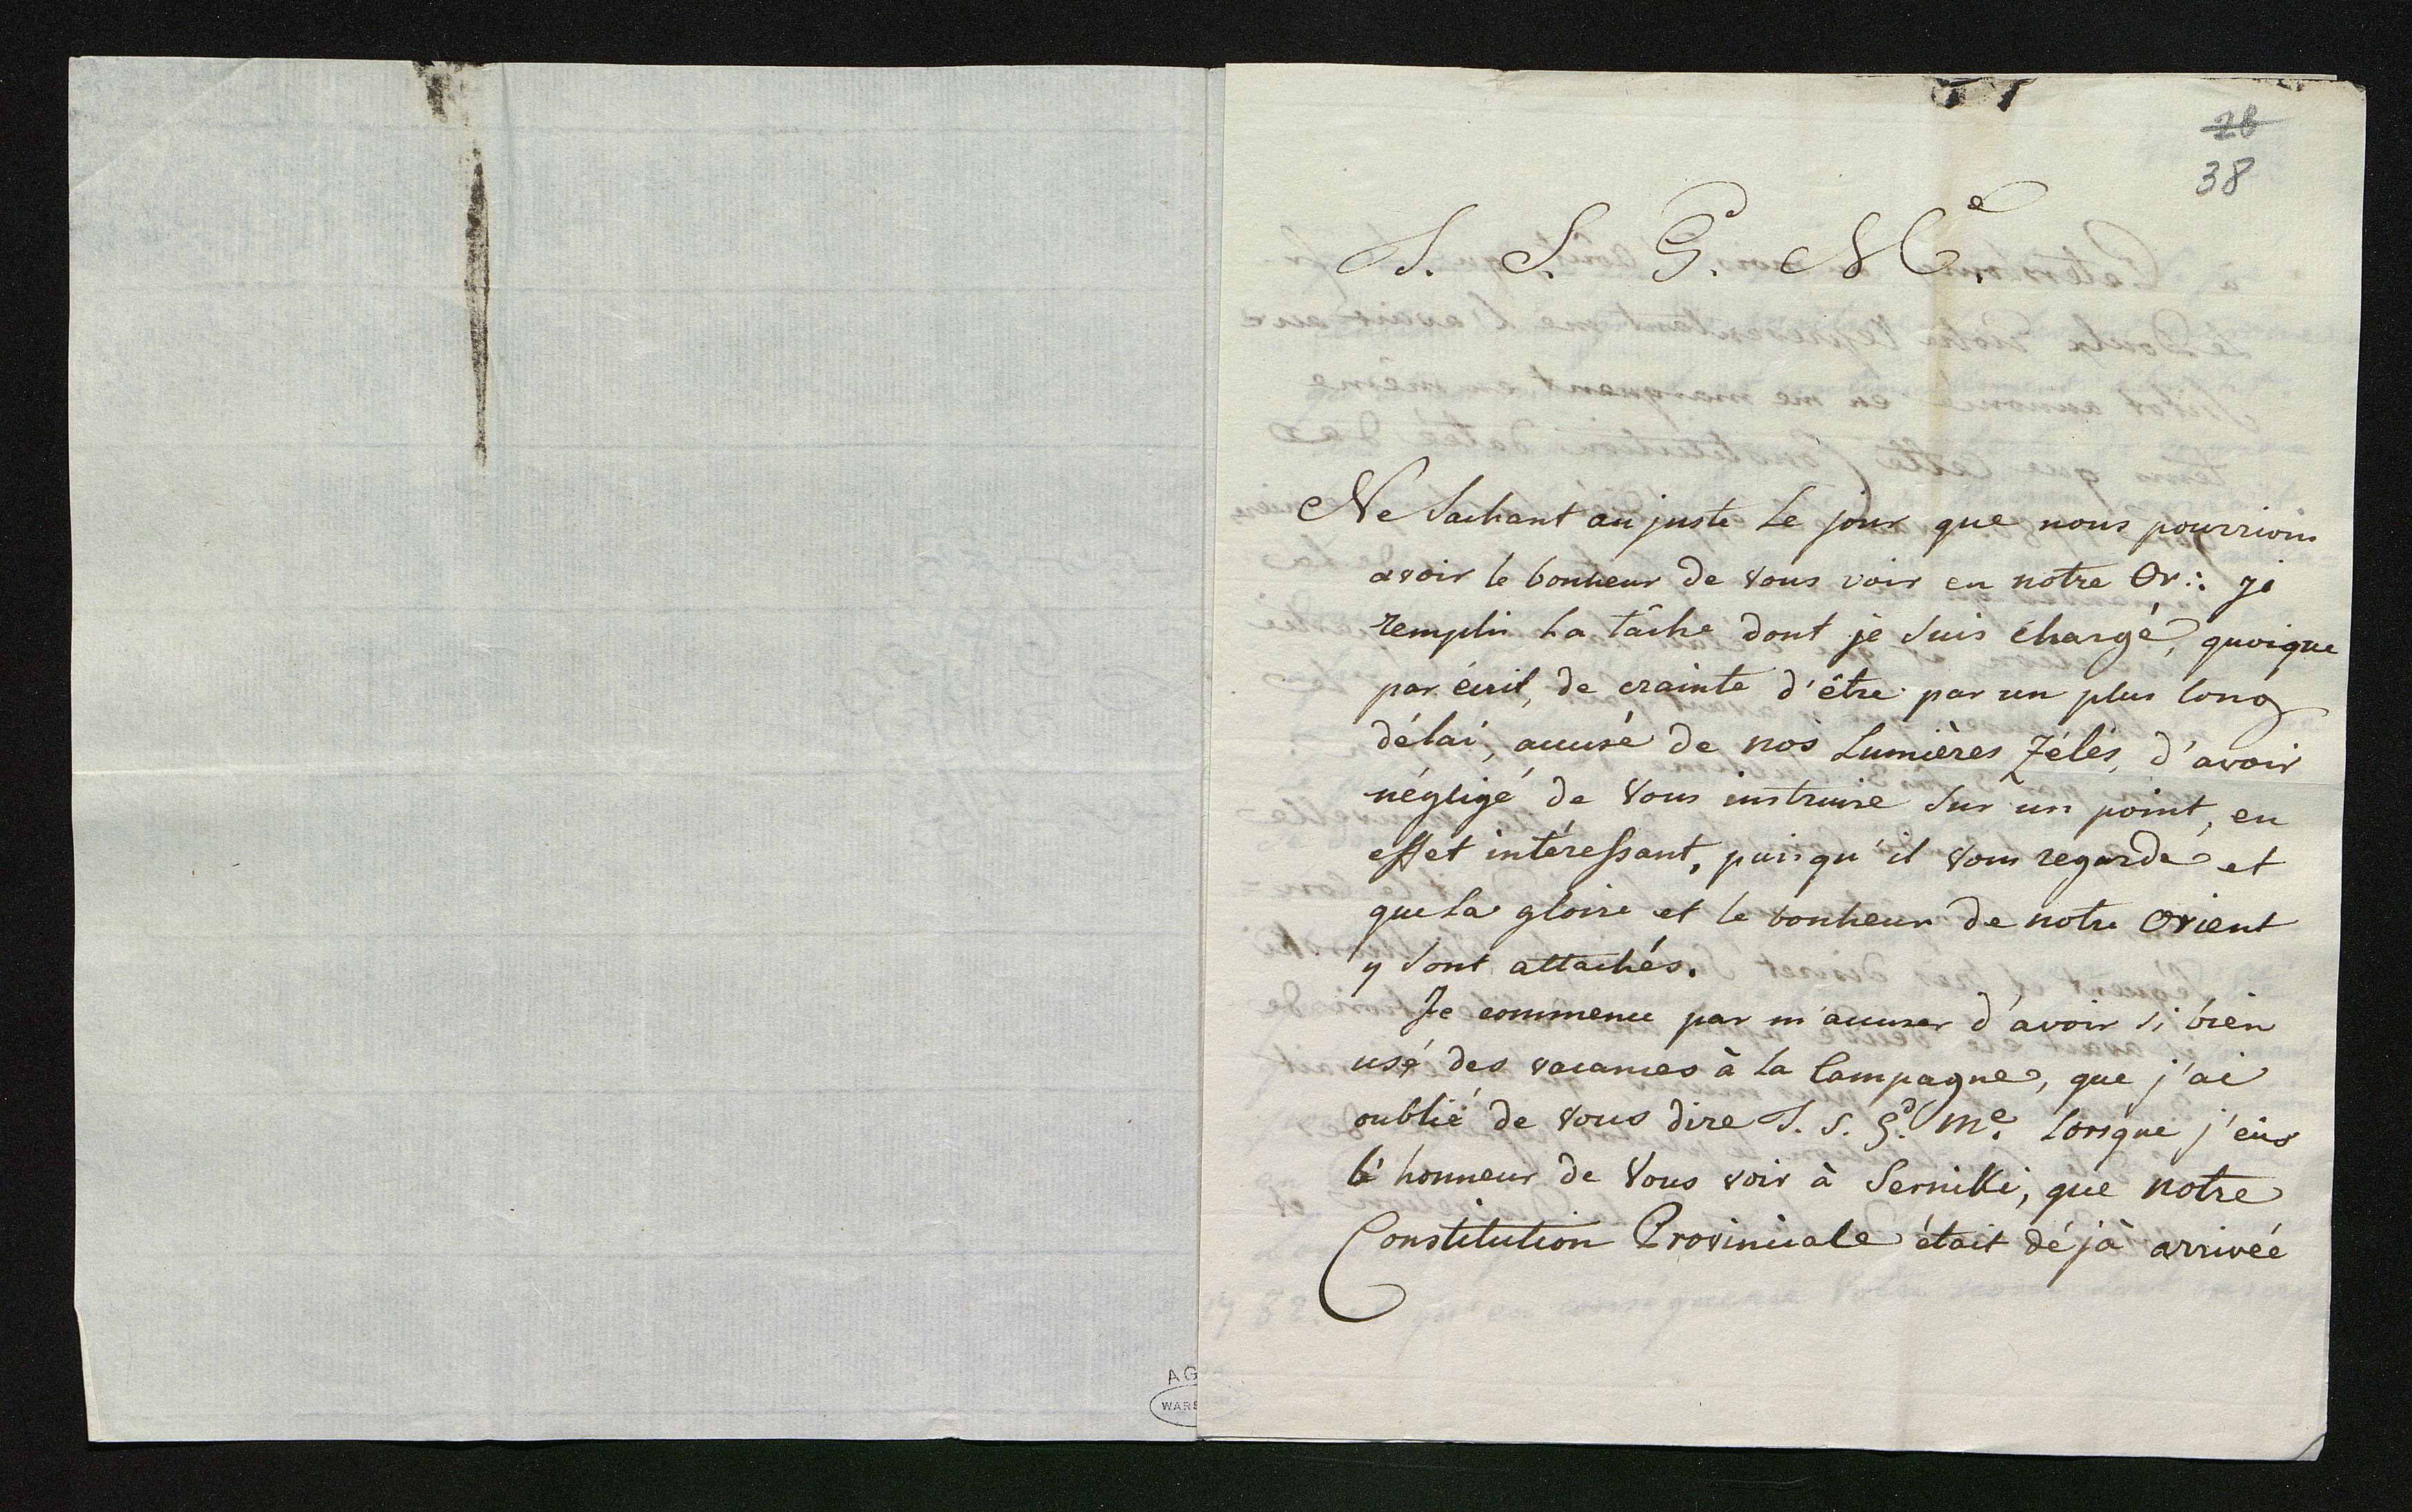 28
38
S. S. G.d M.e
Ne Sachant au juste le jour que nous pourrions
avoir le bonheur de vous voir en notre Or∴ je
remplis la tâche dont je suis chargé, quoique
par écrit, de crainte d'être par un plus long
délai, accusé de nos Lumières Zélés, d'avoir
négligé de vous instruire sur un point, en
effet intéressant, puisqu'il vous regarde et
que la gloire et le bonheur de notre Orient
y sont attachés.
Je commence par m'accuser d'avoir si bien
usé des vacances à la Campagne, que j'ai
oublié de vous dire S. S. G.d M.e lorsque j'eus
l'honneur de vous voir à Serniki, que notre
Constitution Provinciale était déjà arrivée
AG
WARS